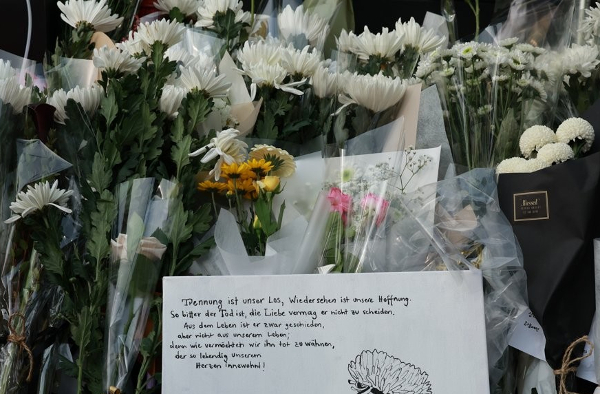 Trennung ist unser Los, Wiedersehen ist unsere Hoffnung.
So bitter der Tod ist, die Liebe vermag er nicht zu scheiden.
Aus dem Leben ist er zwar geschieden,
aber nicht aus unserem Leben;
denn wie vermöchten wir ihn tot zu wähnen,
der so lebendig unserem
Herzen innewohnt!